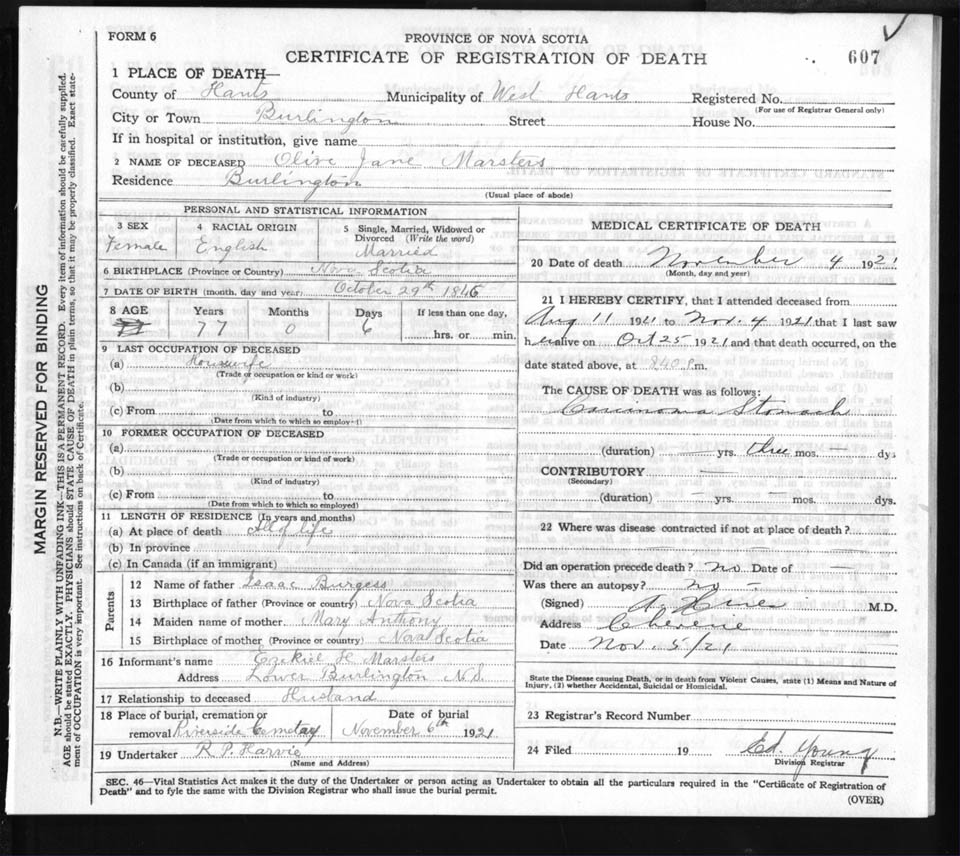 FORM 6
PROVINCE OF NOVA SCOTIA
CERTIFICATE OF REGISTRATION OF DEATH
607
1 PLACE OF DEATH—
County of Hants Municipality of West Hants Registered No.
(For use of Registrar General only)
City or Town Burlington Street House No.
If in hospital or institution, give name
2 NAME OF DECEASED Olive Jane Marsters
Residence Burlington
(Usual place of abode)
MARGIN RESERVED FOR BINDING
N.B.—WRITE PLAINLY WITH UNFADING INK—THIS IS A PERMANENT RECORD. Every item of information should be carefully supplied.
AGE should be stated EXACTLY. PHYSICIANS should STATE CAUSE OF DEATH in plain terms, so that it may be properly classified. Exact state-
ment of OCCUPATION is very important. See instructions on back of Certificate.
PERSONAL AND STATISTICAL INFORMATION
3 SEX 4 RACIAL ORIGIN 5 Single, Married, Widowed or
Divorced (Write the word)
Female English Married
6 BIRTHPLACE (Province or Country) Nova Scotia
7 DATE OF BIRTH (month, day and year) October 29th 1846
8 AGE Years Months Days If less than one day,
77 0 6 hrs. or min.
9 LAST OCCUPATION OF DECEASED
(a) Housewife
(Trade or occupation or kind or work)
(b)
(Kind of industry)
(c) From to
(Date from which to which so employed)
10 FORMER OCCUPATION OF DECEASED
(a)
(Trade or occupation or kind of work)
(b)
(Kind of industry)
(c) From to
(Date from which to which so employed)
11 LENGTH OF RESIDENCE (In years and months)
(a) At place of death All of life
(b) In province
(c) In Canada (if an immigrant)
Parents
12 Name of father Isaac Burgess
13 Birthplace of father (Province or country) Nova Scotia
14 Maiden name of mother Mary Anthony
15 Birthplace of mother (Province or country) Nova Scotia
16 Informant's name Ezekiel H Marsters
Address Lower Burlington N.S.
17 Relationship to deceased Husband
18 Place of burial, cremation or Date of burial
removal Riverside Cemetay November 6th 1921
19 Undertaker R. P. Harvie
(Name and Address)
MEDICAL CERTIFICATE OF DEATH
20 Date of death November 4 1921
(Month, day and year)
21 I HEREBY CERTIFY, that I attended deceased from
Aug 11 1921 to Nov. 4 1921 that I last saw
her alive on Oct 25 1921 and that death occurred, on the
date stated above, at 840 P.m.
The CAUSE OF DEATH was as follows:
Carcinoma Stomach
(duration) — yrs. three mos. — dys
CONTRIBUTORY —
(Secondary)
(duration) — yrs. — mos. dys.
22 Where was disease contracted if not at place of death?
Did an operation precede death? no Date of —
Was there an autopsy? no —
(Signed) M.D.
Address Cheverie
Date Nov. 5/21
State the Disease causing Death, or in death from Violent Causes, state (1) Means and Nature of
Injury, (2) whether Accidental, Suicidal or Homicidal.
23 Registrar's Record Number
24 Filed 19 Ed. Young
Division Registrar
SEC. 46—Vital Statistics Act makes it the duty of the Undertaker or person acting as Undertaker to obtain all the particulars required in the "Certificate of Registration of
Death" and to fyle the same with the Division Registrar who shall issue the burial permit.
(OVER)